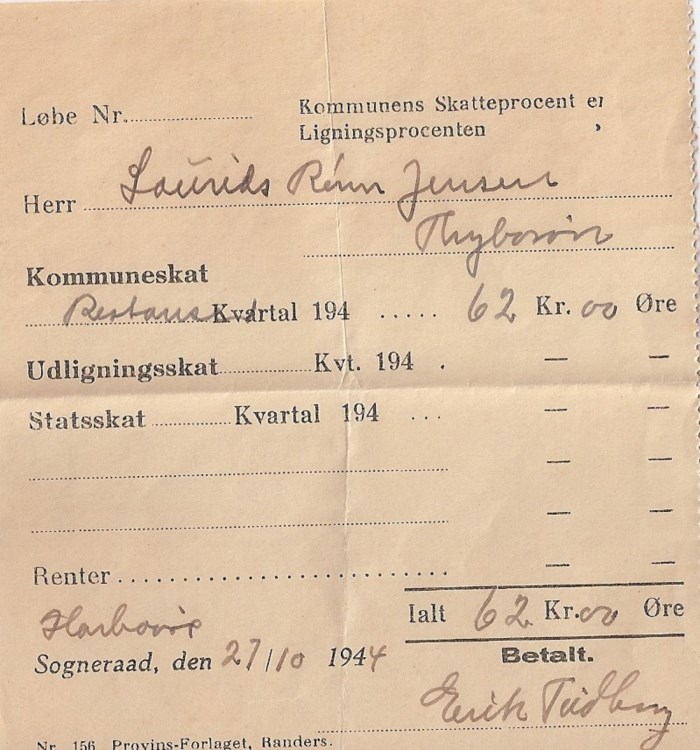 Løbe Nr.
Kommunens Skatteprocent er
Ligningsprocenten ,
Herr Laurids Rönn Jensen
Thyborön
Kommuneskat
Kvartal 194 ..... 62 Kr. 00 Øre
Udligningsskat Kvt. 194 . — —
Statsskat Kvartal 194 ... — —
— —
— —
Renter — —
Ialt 62 Kr. 00 Øre
Harboöre
Sogneraad, den 27/10 1944
Betalt.
Erik
Nr. 156. Provins-Forlaget, Randers.